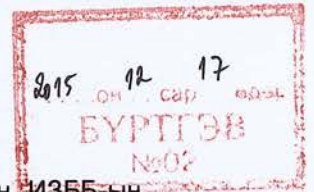 2015 он 12 сар 17 өдөр
БҮРТГЭВ
№02
ИЗББ-ын